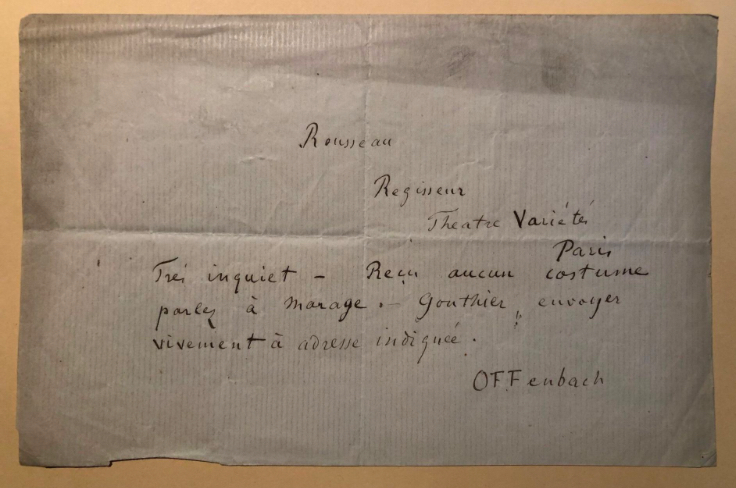 Rousseau
Regisseur
Theatre Variétés
Paris
Très inquiet – Reçu aucun costume
parlez à Marage. – Gouthier, envoyer
vivement à adresse indiquée.
OFFenbach